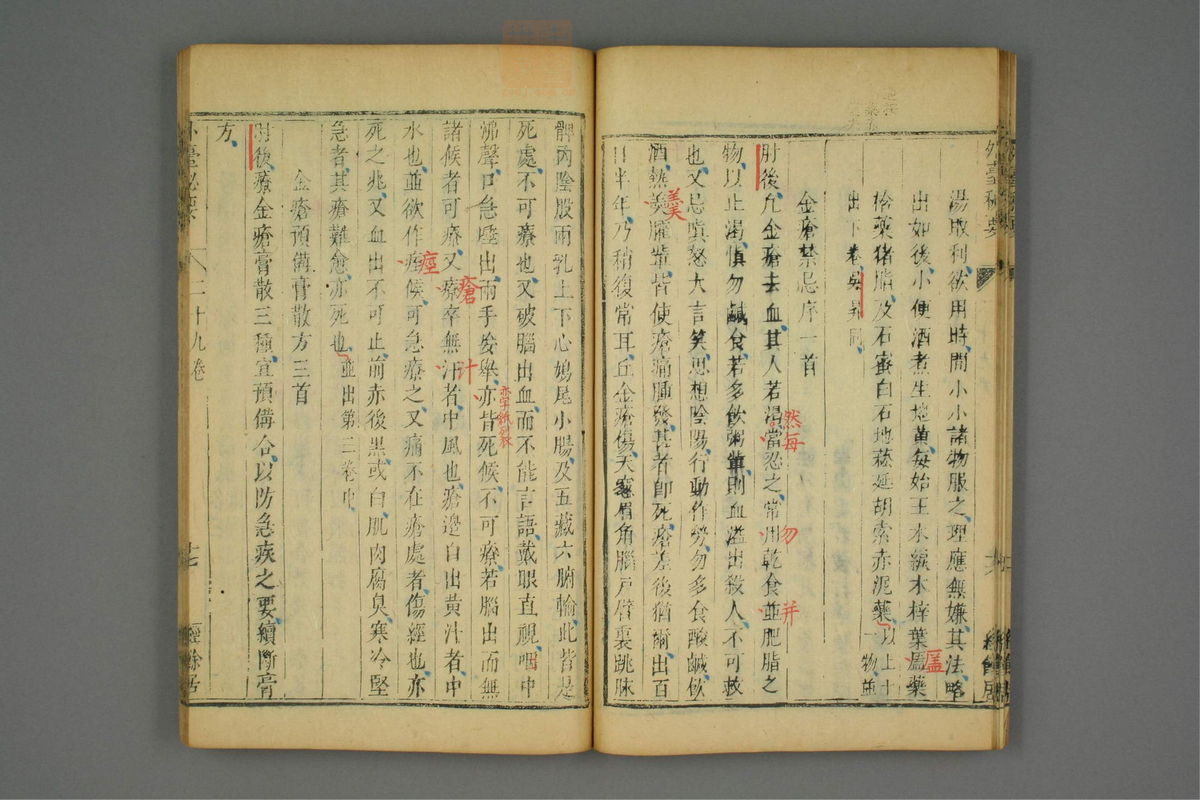 湯取利欲用時間小小諸物服之理應無嫌其法略
出如後小便酒煮生地黃每始王木綠木梓葉藥
袷藥猪脂及石蜜白石地菘延胡索赤泥藥以上十一物並
出下卷吳昇同
金瘡禁忌序一首
肘後凡金瘡去血其人若渴當忍之常用乾食並肥脂之
物以止渴慎勿鹹食若多飲粥輩則血溢出殺人不可救
也又忌嗔怒大言笑思想陰陽行動作勞勿多食酸鹹飲
酒熱羹臛輩皆使瘡痛腫發甚者即死瘡差後猶爾出百
日半年乃稍復常耳丘金瘡傷天窻眉角腦戶臂裏跳脉
然每
勿
并
羙
髀內陰股兩乳上下心鳩尾小腸及五藏六腑輸此皆是
死處不可療也又破腦出血而不能言語戴眼直視咽中
沸聲口急唾出兩手妄舉亦皆死候不可療若腦出而無
諸候者可療又療卒無汁者中風也瘡邊自出黃汁者中
水也並欲作痙候可急療之又痛不在瘡處者傷經也亦
死之兆又血出不可止前赤後黑或白肌肉腐臭寒冷堅
急者其瘡難愈亦死也並出第二卷中
金瘡預備膏散方三首
肘後療金瘡膏散三種宜預備合以防急疾之要續斷膏
方
痙
瘡
汁
外臺秘要
二十九卷
十七
經餘居